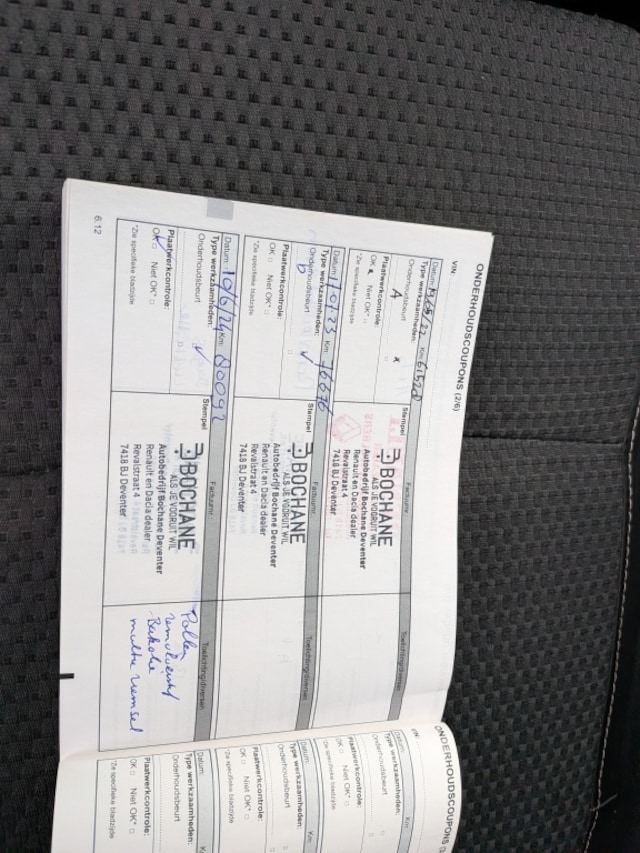 ONDERHOUDSCOUPONS (2/6)
VIN:
Datum: Km: 61520
Type werkzaamheden:
Onderhoudsbeurt
A x
Plaatwerkcontrole:
OK x Niet OK* □
*Zie specifieke bladzijde
Stempel Factuurnr:
BOCHANE
ALS JE VOORUIT WIL
Autobedrijf Bochane Deventer
Renault en Dacia dealer
Revalstraat 4
7418 BJ Deventer
Toelichting/diversen
Datum: Km: 70676
Type werkzaamheden:
Onderhoudsbeurt
Plaatwerkcontrole:
OK □ Niet OK* □
*Zie specifieke bladzijde
Stempel Factuurnr:
BOCHANE
ALS JE VOORUIT WIL
Autobedrijf Bochane Deventer
Renault en Dacia dealer
Revalstraat 4
7418 BJ Deventer
Toelichting/diversen
Datum: 10/6/24 Km: 80092
Type werkzaamheden:
Onderhoudsbeurt ✓
Plaatwerkcontrole:
OK ✓ Niet OK* □
*Zie specifieke bladzijde
Stempel Factuurnr:
BOCHANE
ALS JE VOORUIT WIL
Autobedrijf Bochane Deventer
Renault en Dacia dealer
Revalstraat 4
7418 BJ Deventer
Toelichting/diversen
Pollen
remvloeistof
multi riemset
6.12
ONDERHOUDSCOUPONS
VIN:
Datum: Km:
Type werkzaamheden:
Onderhoudsbeurt □
Plaatwerkcontrole:
OK □ Niet OK* □
*Zie specifieke bladzijde
Datum: Km:
Type werkzaamheden:
Onderhoudsbeurt □
Plaatwerkcontrole:
OK □ Niet OK* □
*Zie specifieke bladzijde
Datum: Km:
Type werkzaamheden:
Onderhoudsbeurt
Plaatwerkcontrole:
OK □ Niet OK* □
*Zie specifieke bladzijde